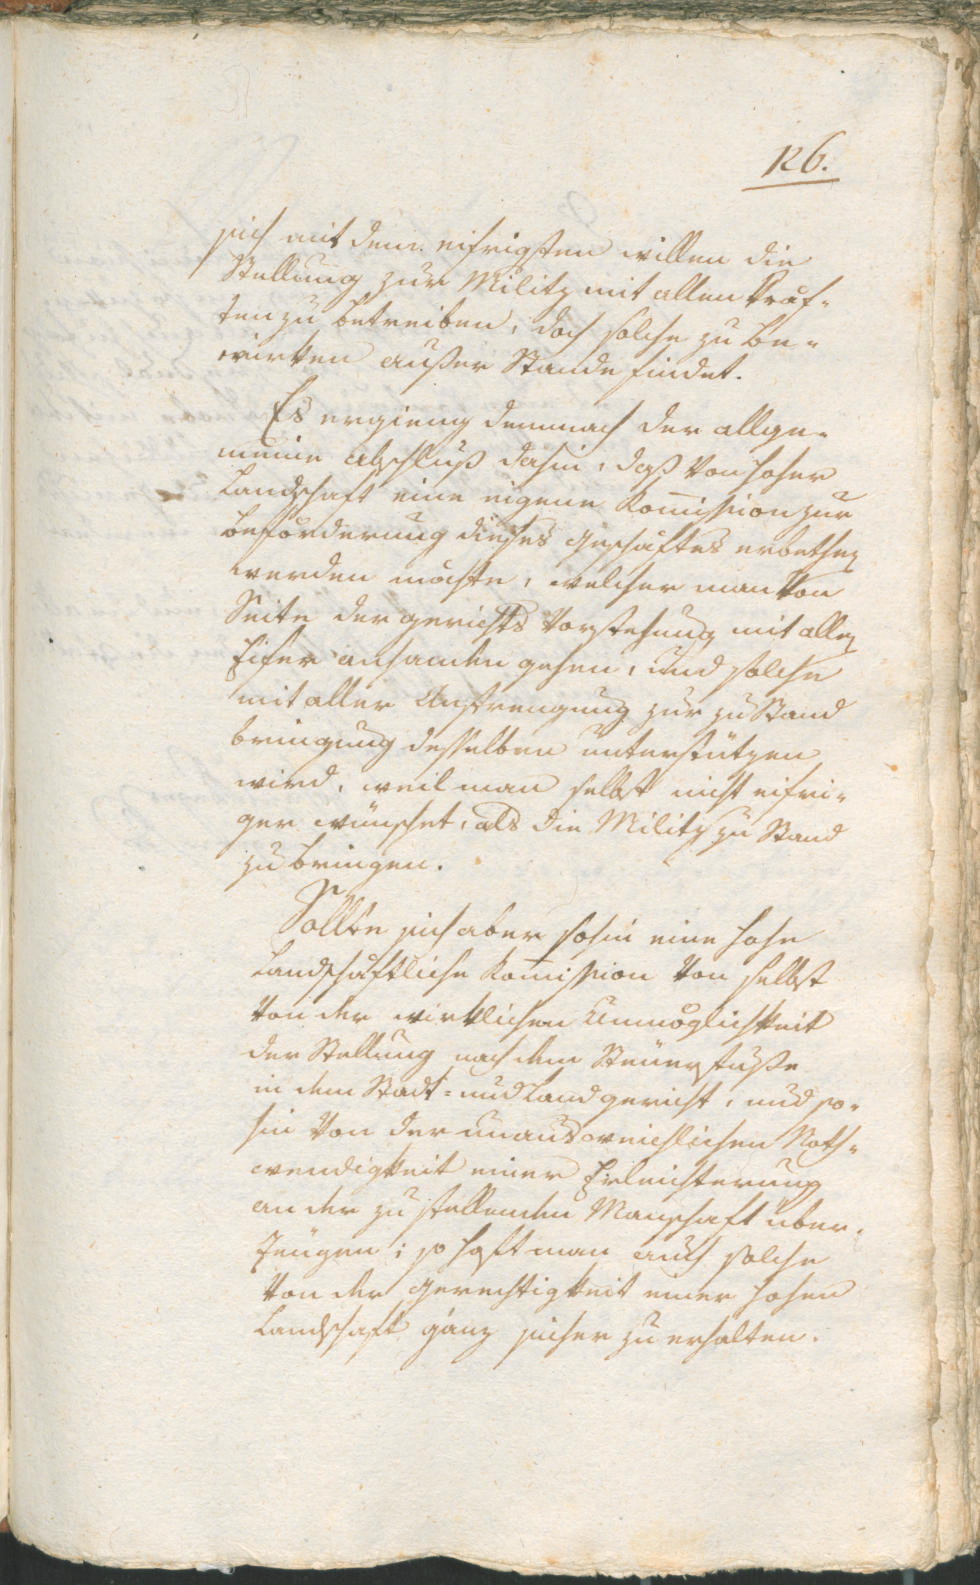 126.
sich mit dem eifrigsten willen die
Stellung zur Militz mit allen Kräf-
ten zu betreiben, doch solche zu be-
wirken außer Stande findet.
Es ergieng demnach der allge-
meine abschluß dahin, daß von hoher
Landschaft eine eigene Kom̅ission zur
beförderung dieses geschäftes erbethen
werden möchte, welcher man von
Seite der gerichts Vorstehung mit allen
Eifer anhanden gehen, und solche
mit aller Anstrengung zur zu Stand
bringung desselben unterstützen
wird, weil man selbst nicht eifri-
ger wünschet, als die Militz zu Stand
zu bringen.
Sollte sich aber sohin eine hohe
Landschäftliche Kom̅ission von selbst
von der wirklichen Unmöglichkeit
der Stellung nach dem Steuerfuße
in dem Stadt- und Landgericht, und so-
hin von der unausweichlichen Noth-
wendigkeit einer Erleichterung
an der zu stellenden Manschaft über-
zeugen; so hoft man auch solche
von der Gerechtigkeit einer hohen
Landschaft ganz sicher zu erhalten.